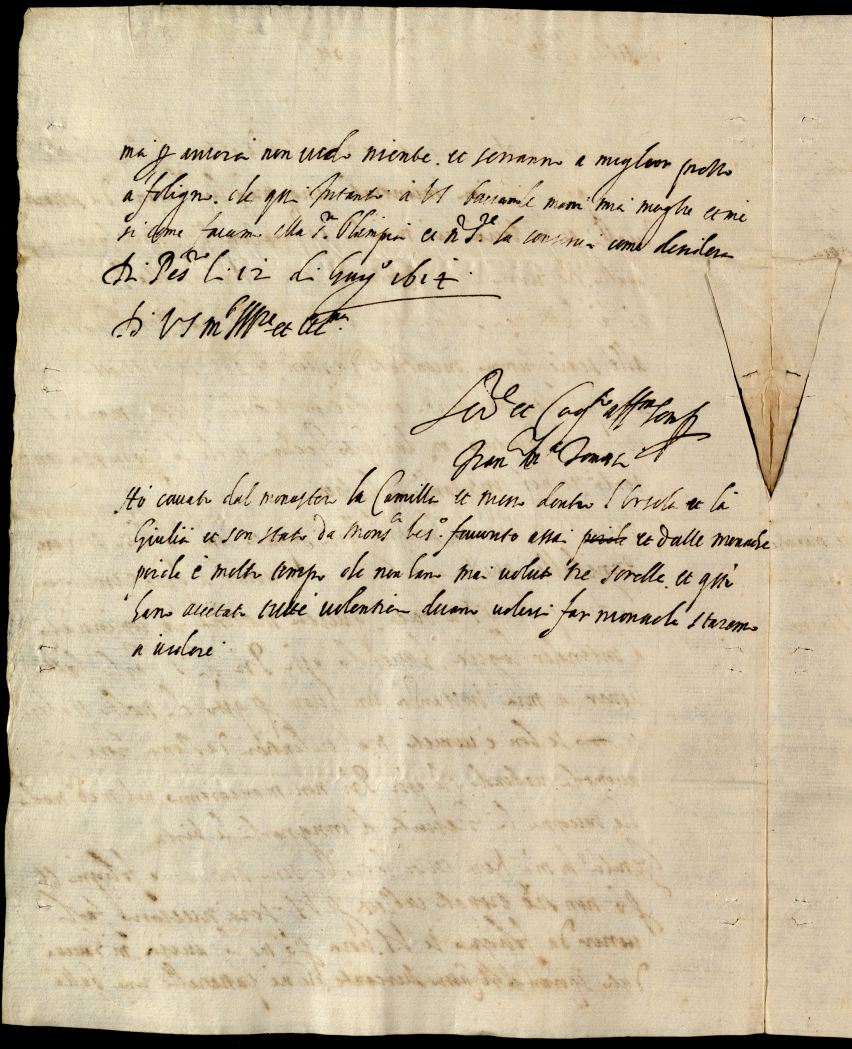 ma p ancora non vedo niente. et seranno a meglior prezzo
a foligno. che qui Intanto à VS basciamo le mani mia moglie et me
si come faciamo alla S.ra Olimpia et n. S.re la conservi come desidera
Di Pes.ro li 12 di Giug.o 1614.
Di VS m.to Ill.re et
Ser.re et Cug.no aff.mo
Fran.co M.a
Hò cavato dal monastero la Camilla et messo dentro l'Orsola et la
Giulia et son stato da Mons.r Ves.o favorito assai perche et dalle monache
perche è molto tempo che non han mai voluto tre sorelle. et qui
han accettate tutte volentieri dicano volersi far monache staremo
a vedere